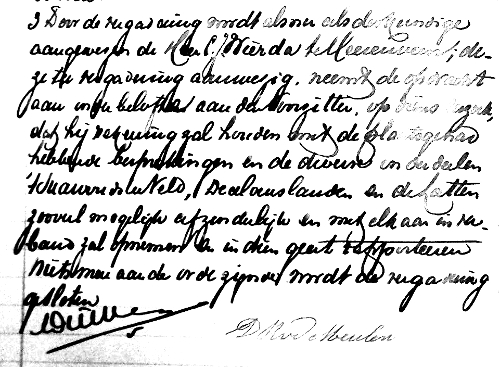 3 Door de vergadering wordt alsnu als deskundige
aangewezen de Heer C. J. Wierda te Heerenveen; de-
ze ter vergadering aanwezig, neemt de opdracht
aan onder belofte aan den Voorzitter, op diens verzoek,
dat hij rekening zal houden met de plaatsgehad
hebbende besprekingen en de diverse onderdeelen
en de
zooveel mogelijk afzonderlijke en met elkaar in ver-
band zal opnemen en in dien geest rapporteeren
Niets meer aan de orde zijnde wordt de vergadering
gesloten
D. v. d. Meulen